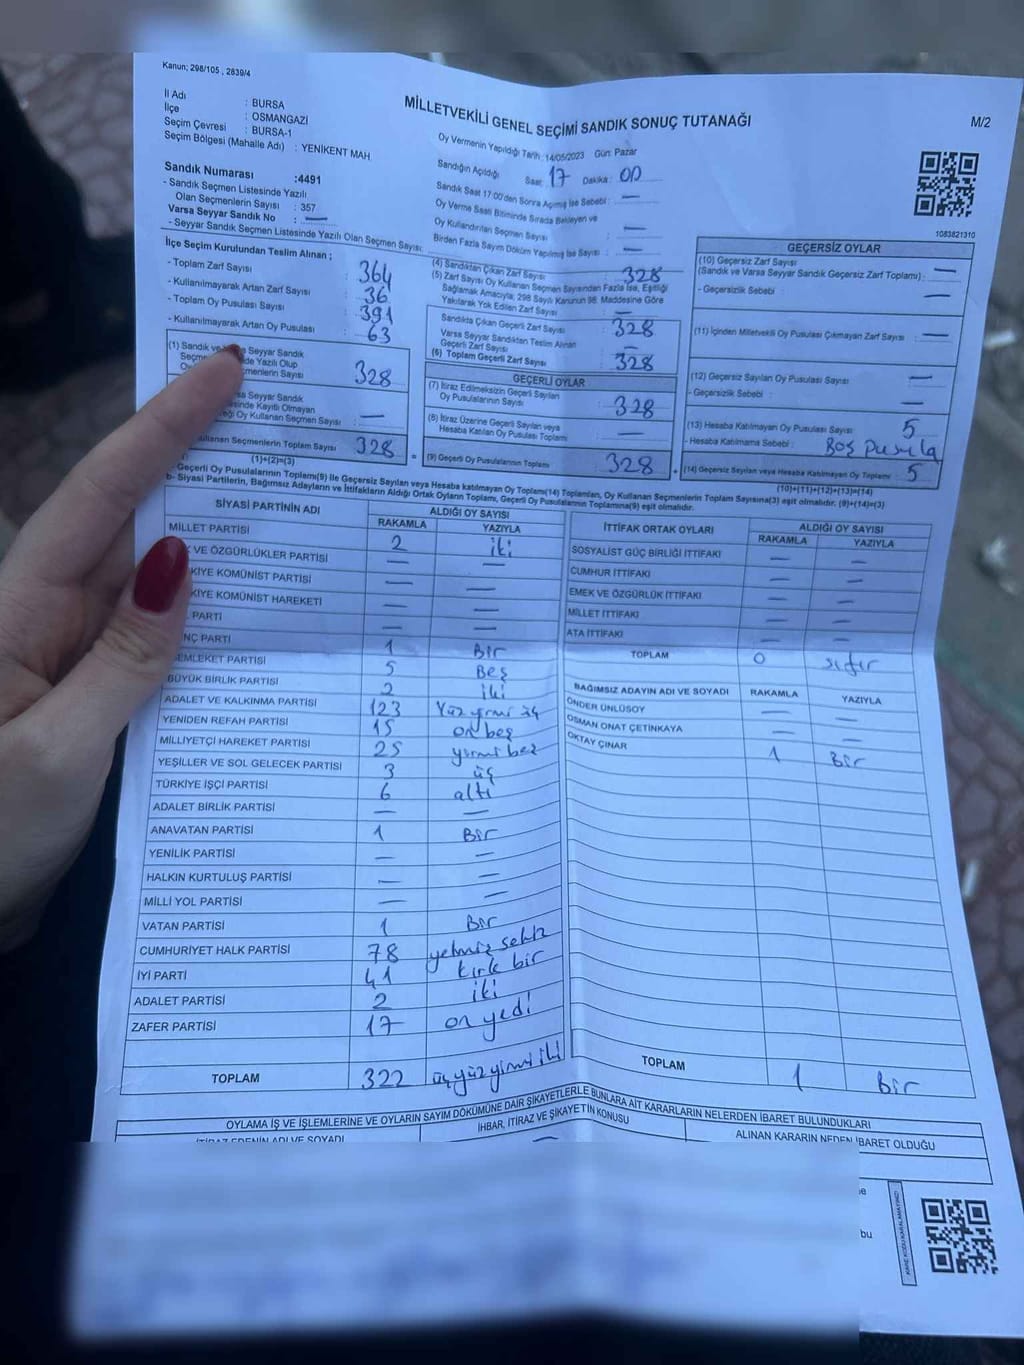 Kanun; 298/105 , 2839/4
MİLLETVEKİLİ GENEL SEÇİMİ SANDIK SONUÇ TUTANAĞI
M/2
İl Adı : BURSA
İlçe : OSMANGAZİ
Seçim Çevresi : BURSA-1
Seçim Bölgesi (Mahalle Adı) : YENİKENT MAH.
Sandık Numarası :4491
- Sandık Seçmen Listesinde Yazılı
Olan Seçmenlerin Sayısı : 357
Varsa Seyyar Sandık No : —
- Seyyar Sandık Seçmen Listesinde Yazılı Olan Seçmen Sayısı:
Oy Vermenin Yapıldığı Tarih :14/05/2023 Gün: Pazar
Sandığın Açıldığı Saat: 17 Dakika: 00
Sandık Saat 17:00'den Sonra Açılmış İse Sebebi : —
Oy Verme Saati Bitiminde Sırada Bekleyen ve
Oy Kullandırılan Seçmen Sayısı : —
Birden Fazla Sayım Döküm Yapılmış İse Sayısı : —
1083821310
İlçe Seçim Kurulundan Teslim Alınan ;
- Toplam Zarf Sayısı : 364
- Kullanılmayarak Artan Zarf Sayısı : 36
- Toplam Oy Pusulası Sayısı : 391
- Kullanılmayarak Artan Oy Pusulası : 63
(1) Sandık ve Seyyar Sandık
Yazılı Olup
Sayısı 328
Seyyar Sandık
Kayıtlı Olmayan
Oy Kullanan Seçmen Sayısı : —
Kullanan Seçmenlerin Toplam Sayısı 328
(1)+(2)=(3)
(4) Sandıktan Çıkan Zarf Sayısı : 328
(5) Zarf Sayısı Oy Kullanan Seçmen Sayısından Fazla İse, Eşitliği
Sağlamak Amacıyla; 298 Sayılı Kanunun 98. Maddesine Göre
Yakılarak Yok Edilen Zarf Sayısı : —
Sandıkta Çıkan Geçerli Zarf Sayısı : 328
Varsa Seyyar Sandıktan Teslim Alınan
Geçerli Zarf Sayısı : —
(6) Toplam Geçerli Zarf Sayısı : 328
GEÇERLİ OYLAR
(7) İtiraz Edilmeksizin Geçerli Sayılan
Oy Pusulalarının Sayısı : 328
(8) İtiraz Üzerine Geçerli Sayılan veya
Hesaba Katılan Oy Pusulası Toplamı : —
(9) Geçerli Oy Pusulalarının Toplamı 328
GEÇERSİZ OYLAR
(10) Geçersiz Zarf Sayısı
(Sandık ve Varsa Seyyar Sandık Geçersiz Zarf Toplamı) : —
- Geçersizlik Sebebi : —
(11) İçinden Milletvekili Oy Pusulası Çıkmayan Zarf Sayısı : —
(12) Geçersiz Sayılan Oy Pusulası Sayısı : —
- Geçersizlik Sebebi : —
(13) Hesaba Katılmayan Oy Pusulası Sayısı : 5
- Hesaba Katılmama Sebebi : Boş pusula
(14) Geçersiz Sayılan veya Hesaba Katılmayan Oy Toplamı : 5
(10)+(11)+(12)+(13)=(14)
Geçerli Oy Pusulalarının Toplamı(9) ile Geçersiz Sayılan veya Hesaba katılmayan Oy Toplamı(14) Toplamları, Oy Kullanan Seçmenlerin Toplam Sayısına(3) eşit olmalıdır. (9)+(14)=(3)
b- Siyasi Partilerin, Bağımsız Adayların ve İttifakların Aldığı Ortak Oyların Toplamı, Geçerli Oy Pusulalarının Toplamına(9) eşit olmalıdır.
SİYASİ PARTİNİN ADI ALDIĞI OY SAYISI
RAKAMLA YAZIYLA
MİLLET PARTİSİ 2 iki
VE ÖZGÜRLÜKLER PARTİSİ — —
KİYE KOMÜNİST PARTİSİ — —
KİYE KOMÜNİST HAREKETİ — —
PARTİ — —
NÇ PARTİ 1 Bir
EMLEKET PARTİSİ 5 Beş
BÜYÜK BİRLİK PARTİSİ 2 iki
ADALET VE KALKINMA PARTİSİ 123 Yüz yirmi üç
YENİDEN REFAH PARTİSİ 15 on beş
MİLLİYETÇİ HAREKET PARTİSİ 25 yirmi beş
YEŞİLLER VE SOL GELECEK PARTİSİ 3 üç
TÜRKİYE İŞÇİ PARTİSİ 6 altı
ADALET BİRLİK PARTİSİ — —
ANAVATAN PARTİSİ 1 Bir
YENİLİK PARTİSİ — —
HALKIN KURTULUŞ PARTİSİ — —
MİLLİ YOL PARTİSİ — —
VATAN PARTİSİ 1 Bir
CUMHURİYET HALK PARTİSİ 78 yetmiş sekiz
İYİ PARTİ 41 kırk bir
ADALET PARTİSİ 2 iki
ZAFER PARTİSİ 17 on yedi
TOPLAM 322 üç yüz yirmi iki
İTTİFAK ORTAK OYLARI ALDIĞI OY SAYISI
RAKAMLA YAZIYLA
SOSYALİST GÜÇ BİRLİĞİ İTTİFAKI — —
CUMHUR İTTİFAKI — —
EMEK VE ÖZGÜRLÜK İTTİFAKI — —
MİLLET İTTİFAKI — —
ATA İTTİFAKI — —
TOPLAM 0 sıfır
BAĞIMSIZ ADAYIN ADI VE SOYADI RAKAMLA YAZIYLA
ÖNDER ÜNLÜSOY — —
OSMAN ONAT ÇETİNKAYA — —
OKTAY ÇINAR 1 Bir
TOPLAM 1 Bir
OYLAMA İŞ VE İŞLEMLERİNE VE OYLARIN SAYIM DÖKÜMÜNE DAİR ŞİKAYETLERLE BUNLARA AİT KARARLARIN NELERDEN İBARET BULUNDUKLARI
İTİRAZ EDENİN ADI VE SOYADI
İHBAR, İTİRAZ VE ŞİKAYETİN KONUSU
ALINAN KARARIN NEDEN İBARET OLDUĞU
—
bu
KARE KODU KARALAMAYINIZ!